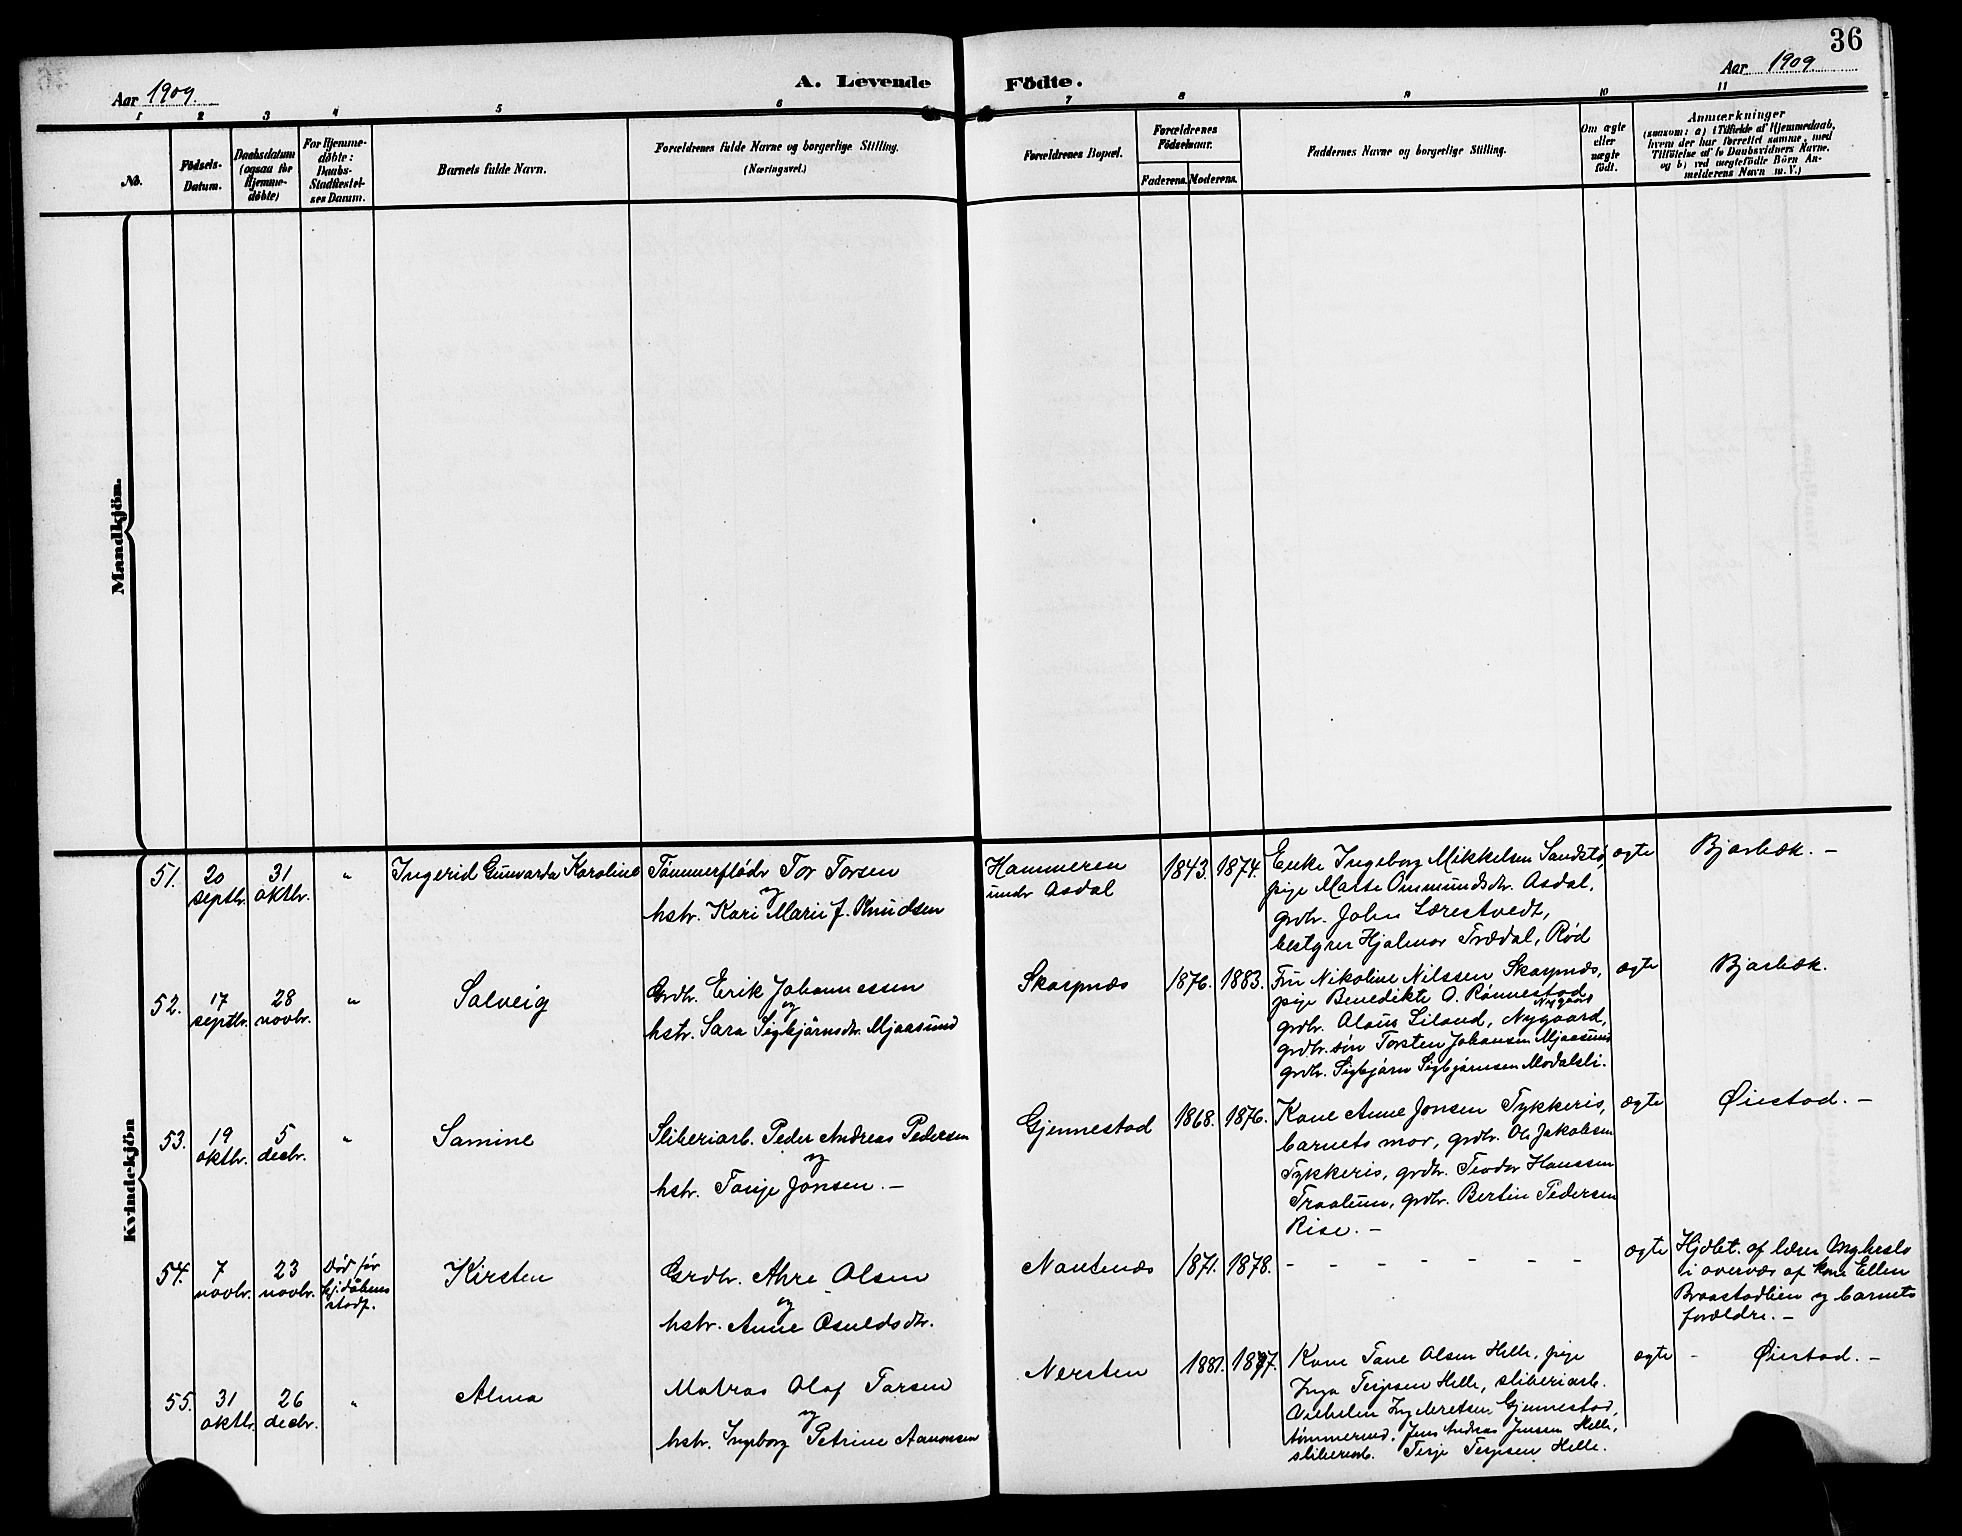 36
Aar 1909
A. Levende Födte.
Aar 1909
1 2 3 4 5 6 7 8 9 10 11
No.
Födsels-Datum.
Daabsdatum (ogsaa for Hjemme-döbte)
For Hjemme-döbte: Daabs-Stadfæstel-ses Datum.
Barnets fulde Navn.
Forældrenes fulde Navne og borgerlige Stilling.
(Næringsvei.)
Forældrenes Bopæl.
Forældrenes Födselsaar.
Faderens. Moderens.
Faddernes Navne og borgerlige Stilling.
Om ægte eller uægte födt.
Anmærkninger
(saasom: a) i Tilfælde af Hjemmedaab,
hvem der har forrettet samme, med
Tilföielse af to Daabsvidners Navne,
og b) ved uægtefödte Börn An-
melderens Navn m. V.)
Mandkjön.
Kvindekjön
51. 20 septbr. 31 oktbr. " Ingerid Gunvarda Karoline
Tømmerflødr Tor Torsen
og
hstr. Kari Marie J. Knudsen
Hammeren
undr Asdal
1843. 1874.
Enke Ingeborg Mikkelsen Sandstø,
pige Marte Ommundsdtr. Asdal,
grdbr. John Lærestvedt,
bestyrer Hjalmar Trædal, Rød
ægte
Bjorbæk. –
52. 17 septbr. 28 novbr. " Solveig
Grdbr. Erik Johannessen
og
hstr. Sara Sigbjørnsdtr. Mjaasund
Skarpnæs
1876. 1883.
Fru Nikoline Nilssen Skarpnæs,
pige Benedikte O. Rønnestad
Nygaard
grdbr. Olaus Liland, Nygaard,
grdbr. søn Torsten Johansen Mjaasund
grdbr. Sigbjørn Sigbjørnsen Modalsli.
ægte
Bjorbæk.
53. 19 oktbr. 5 decbr. " Samine
Sliberiarb. Peder Andreas Pedersen
og
hstr. Tonje Jonsen. –
Gjennestad
1868. 1876.
Kone Anne Jonsen Tykkeris,
barnets mor, grdbr. Ole Jakobsen
Tykkeris, grdbr. Teodor Hanssen
Traalum, grdbr. Bertin Pedersen
Rise. –
ægte
Øiestad. –
54. 7 novbr. 23 novbr. Død før hj.dåbens stadf. Kirsten
Grdbr. Ahre Olsen
og
hstr. Anne Osuldsdtr.
Nautenæs
1871. 1878.
– – – – – – –
ægte
Hjdbt. af lærer
i overvær af kone Ellen
Braastadlien og barnets
forældre. –
55. 31 oktbr. 26 decbr. " Alma
Matros Olaf Tarsen
og
hstr. Ingeborg Petrine Aanonsen
Nersten
1881. 1877.
Kone Tone Olsen Helle, pige
Inga Terjesen Helle, sliberiarb.
Vilhelm Ingebretsen Gjennestad,
tømmermd. Jens Andreas Jensen Helle,
sliberiarb. Terje Terjesen Helle.
ægte
– Øiestad. –